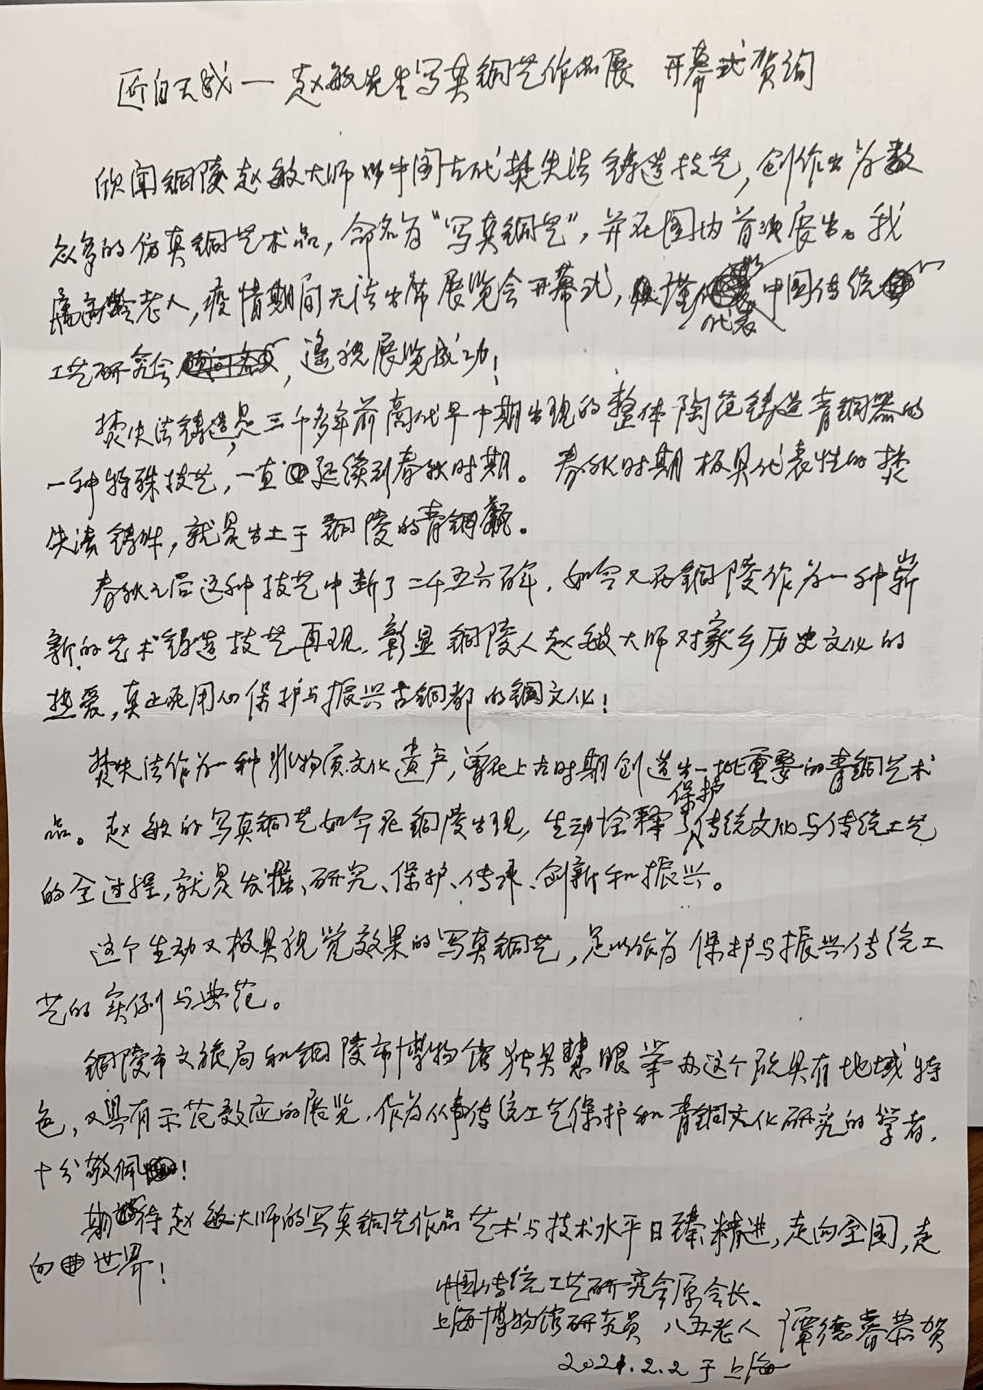 匠自天成一赵敏先生写真铜艺作品展 开幕式贺词
欣闻铜陵赵敏大师以中国古代焚失法铸造技艺，创作出为数
众多的仿真铜艺术品，命名为“写真铜艺”，并在国内首次展出。我
属高龄老人，疫情期间无法出席展览会开幕式，谨代表中国传统
工艺研究会，遥祝展览成功！
焚失法铸造是三千多年前商代早中期出现的整体陶范铸造青铜器的
一种特殊技艺，一直延续到春秋时期。春秋时期极具代表性的焚
失法铸件，就是出土于铜陵的青铜甗。
春秋之后这种技艺中断了二千五六百年，如今又在铜陵作为一种崭
新的艺术铸造技艺再现，彰显铜陵人赵敏大师对家乡历史文化的
热爱，真正在用心保护与振兴古铜都的铜文化！
焚失法作为一种非物质文化遗产，曾在上古时期创造出一批重要的青铜艺术
品。赵敏的写真铜艺如今在铜陵出现，生动诠释了保护传统文化与传统工艺
的全过程，就是发掘、研究、保护、传承、创新和振兴。
这个生动又极具视觉效果的写真铜艺，足以作为保护与振兴传统工
艺的实例与典范。
铜陵市文旅局和铜陵市博物馆独具慧眼举办这个既具有地域特
色，又具有示范效应的展览，作为从事传统工艺保护和青铜文化研究的学者，
十分敬佩！
期待赵敏大师的写真铜艺作品艺术与技术水平日臻精进，走向全国，走
向世界！
中国传统工艺研究会原会长、
上海博物馆研究员 八五老人 谭德睿恭贺
2021.2.2于上海